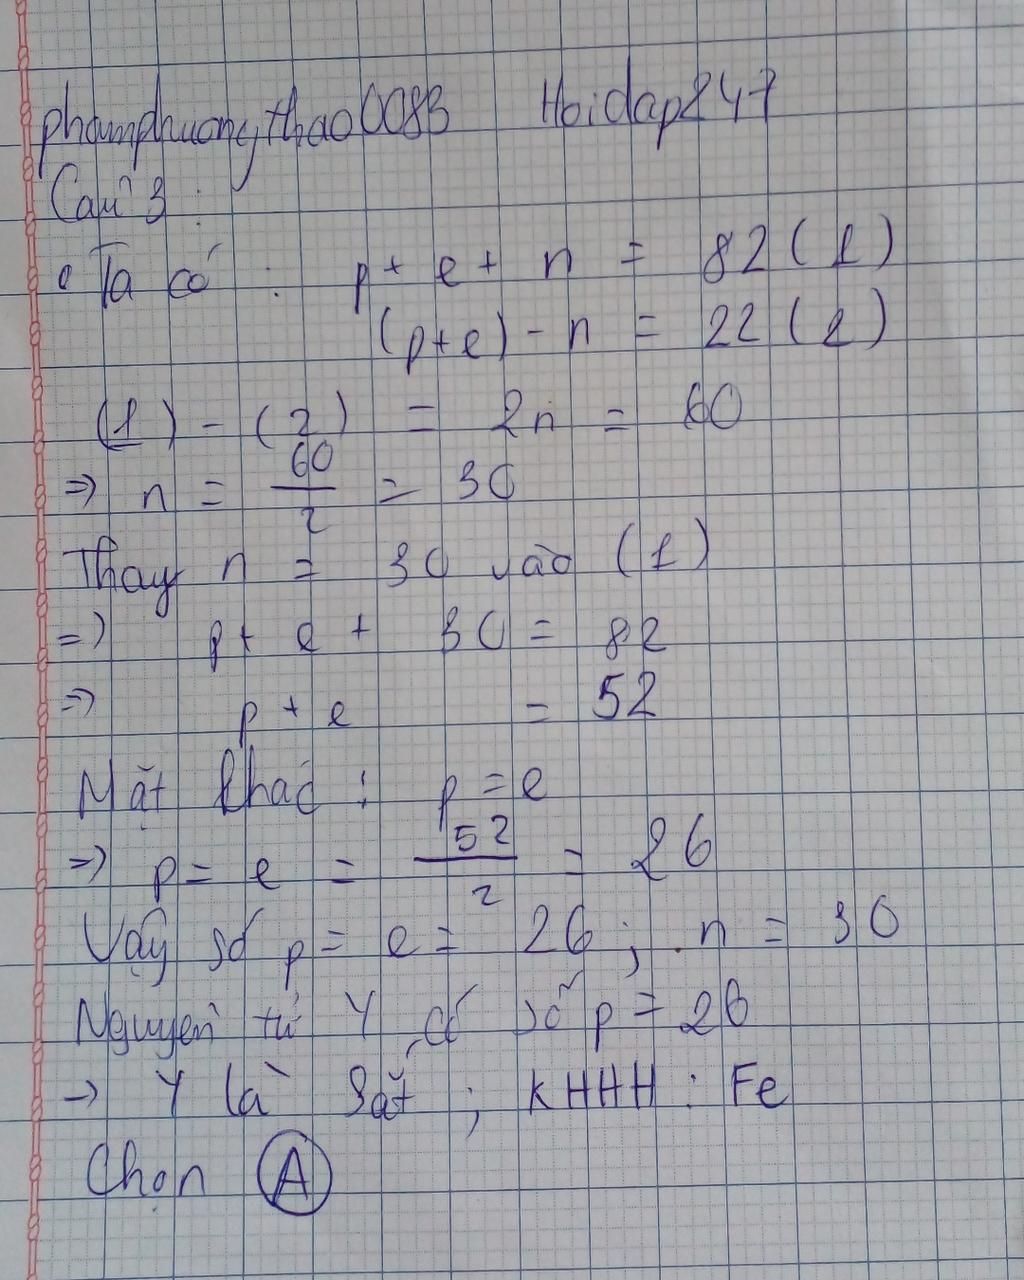 phamphuongthao0083 Hoidap247
Câu 3 :
• Ta có : p + e + n = 82 (1)
(p+e) - n = 22 (2)
(1) - (2) = 2n = 60
=> n = 60/2 = 30
Thay n = 30 vào (1)
=> p + e + 30 = 82
=> p + e = 52
Mặt khác : p = e
=> p = e = 52/2 = 26
Vậy số p = e = 26 ; n = 30
Nguyên tử Y có số p = 26
-> Y là Sắt ; KHHH : Fe
Chọn A